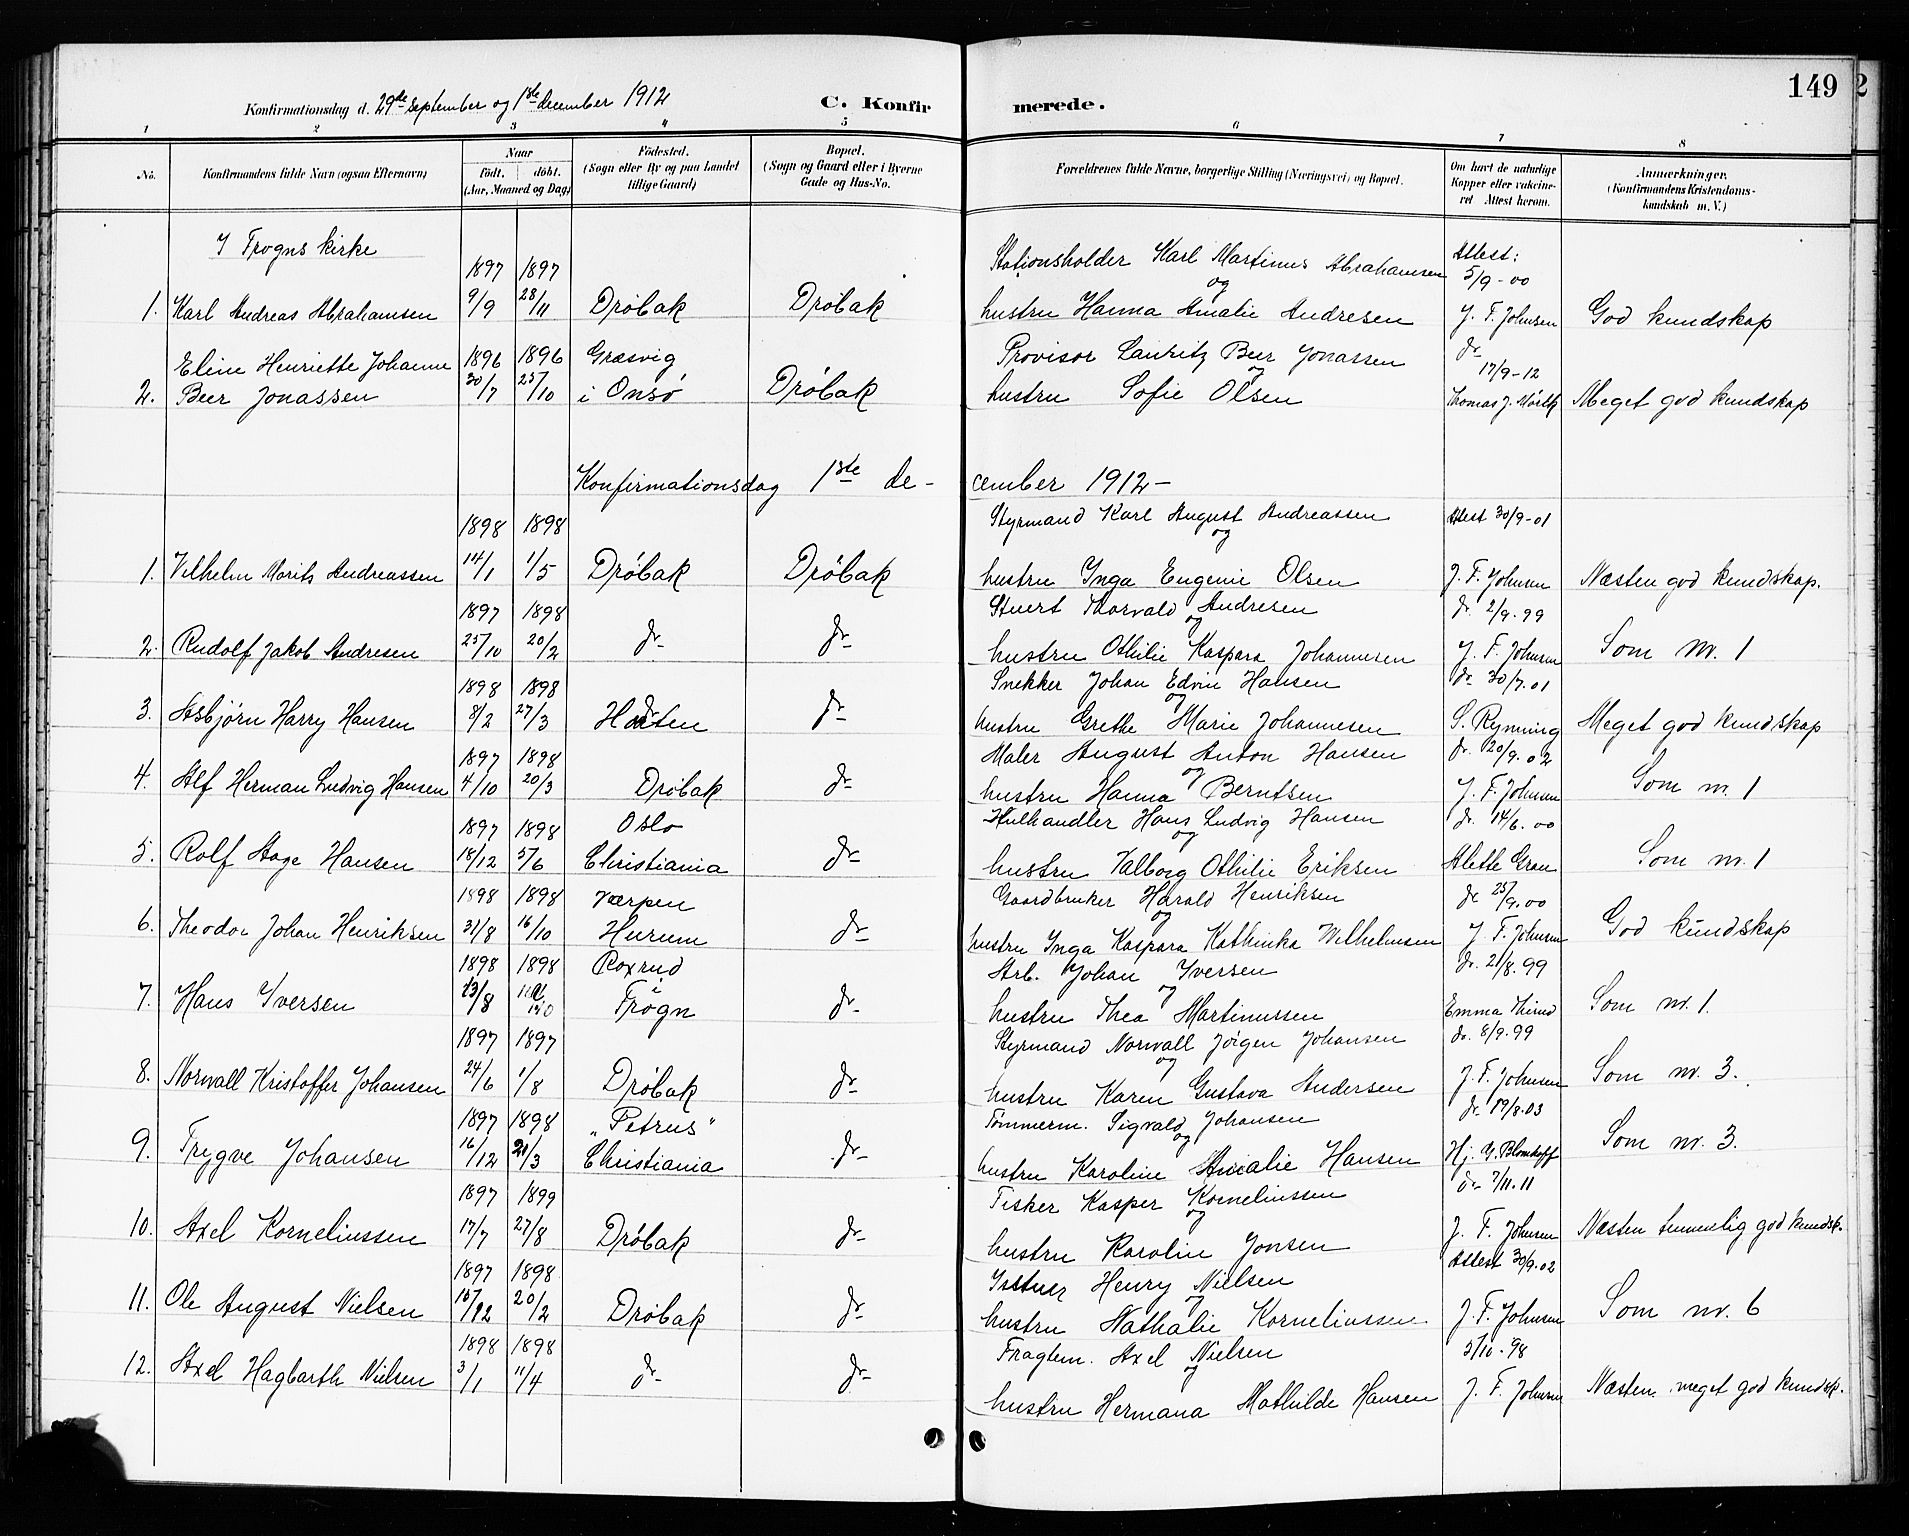 149
Konfirmationsdag d. 29de september og 1ste december 1912 C. Konfirmerede.
1 2 3 4 5 6 7 8
No. Konfirmandens fulde Navn (ogsaa Efternavn) Naar födt. döbt. (Aar, Maaned og Dag) Födested. (Sogn eller By og paa Landet tillige Gaard) Bopæl. (Sogn og Gaard eller i Byerne Gade og Hus-No. Forældrenes fulde Navne, borgerlige Stilling (Næringsvei) og Bopæl. Om havt de naturlige Kopper eller vakcineret Attest herom. Anmerkninger. (Konfirmandens Kristendomskundskab m. V.)
I Frogns kirke
1897 1897 Stationsholder Karl Martinus Abrahamsen og Attest: 5/9-00
1. Karl Andreas Abrahamsen 9/9 28/11 Drøbak Drøbak hustru Hanna Amalie Andresen J. F. Johnsen God kundskap
Eline Henriette Johanne 1896 1896 Græsvig Provisor Lauritz Beer Jonassen og do 17/9-12
2. Beer Jonassen 30/7 25/10 i Onsø Drøbak hustru Sofie Olsen Thomas J. Mørch Meget god kundskap
Konfirmationsdag 1ste december 1912-
1898 1898 Styrmand Karl August Andreassen og Attest 30/9-01
1. Vilhelm Morits Andreassen 14/1 1/5 Drøbak Drøbak hustru Inga Eugenie Olsen J. F. Johnsen Næsten god kundskap.
1897 1898 Stuert Thorvald Andresen og do. 2/9.99
2. Rudolf Jakob Andresen 25/10 20/2 do- do- hustru Othilie Kaspara Johannesen J. F. Johnsen Som nr. 1
1898 1898 Snekker Johan Edvin Hansen og do 30/7.01
3. Asbjørn Harry Hansen 8/2 27/3 do- hustru Grethe Marie Johannesen S. Rynning Meget god kundskap
1897 1898 Maler August Anton Hansen og do. 20/9.02
4. Alf Herman Ludvig Hansen 4/10 20/3 Drøbak do- hustru Hanna Berntsen J. F. Johnsen Som nr. 1
1897 1898 Oslo Kulhandler Hans Ludvig Hansen og do. 14/6.00
5. Rolf Aage Hansen 18/12 5/6 Christiania do- hustru Valborg Othilie Eriksen Alette Gran Som nr. 1
1898 1898 Værpen Gaardbruker Harald Henriksen og do 25/9.00
6. Theodor Johan Henriksen 31/8 16/10 Hurum do- hustru Inga Kaspara Kathinka Wilhelmsen J F. Johnsen God kundskap
1898 1898 Roxrud i Arb. Johan Iversen og do. 21/8.99
7. Hans Iversen 13/8 Frogn do- hustru Thea Martinussen Emma Som nr. 1.
1897 1897 Styrmand Norvall Jørgen Johansen og do. 8/9.99
8. Norvall Kristoffer Johansen 24/6 1/8 Drøbak do- hustru Karen Gustava Andersen J. F. Johnsen Som nr. 3.
1897 1898 "Petrus" Tømmerm. Sigvald Johansen og do. 19/8.03
9. Trygve Johansen 16/12 20/3 Christiania do- hustru Karoline Amalie Hansen Hj. G. Blomhoff Som nr. 3.
1897 1899 Fisker Kasper Korneliussen og do 7/11.11
10. Axel Korneliussen 17/7 27/8 Drøbak do- hustru Karolin Jonsen J. F. Johnsen Næsten temmelig god kundsk.
1897 1898 Henry Nielsen og Attest 30/9.02
11. Ole August Nielsen 15/12 20/2 Drøbak do- hustru Nathalie Korneliussen J. F. Johnsen Som nr. 6
1898 1898 Fragtem. Axel Nielsen og 5/10.98
12. Axel Hagbarth Nielsen 3/1 11/4 do- do- hustru Hermana Mathilde Hansen J. F. Johnsen Næsten meget god kundsk.